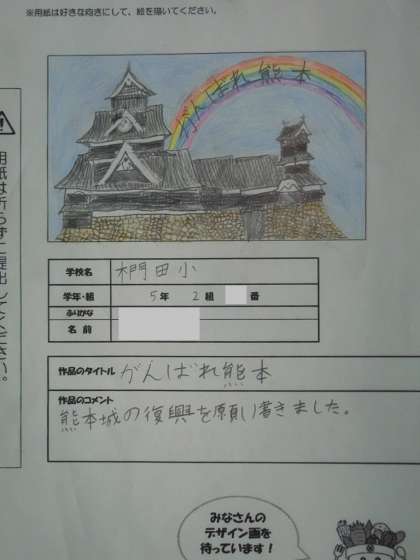 ※用紙は好きな向きにして、絵を描いてください。
がんばれ熊本
用紙は折らずに提出してください。
学校名 椚田小
学年・組 5年 2組 番
ふりがな
名前
作品のタイトル がんばれ熊本
作品のコメント
熊本城の復興を願い書きました。
みなさんの
デザイン画を
待っています！